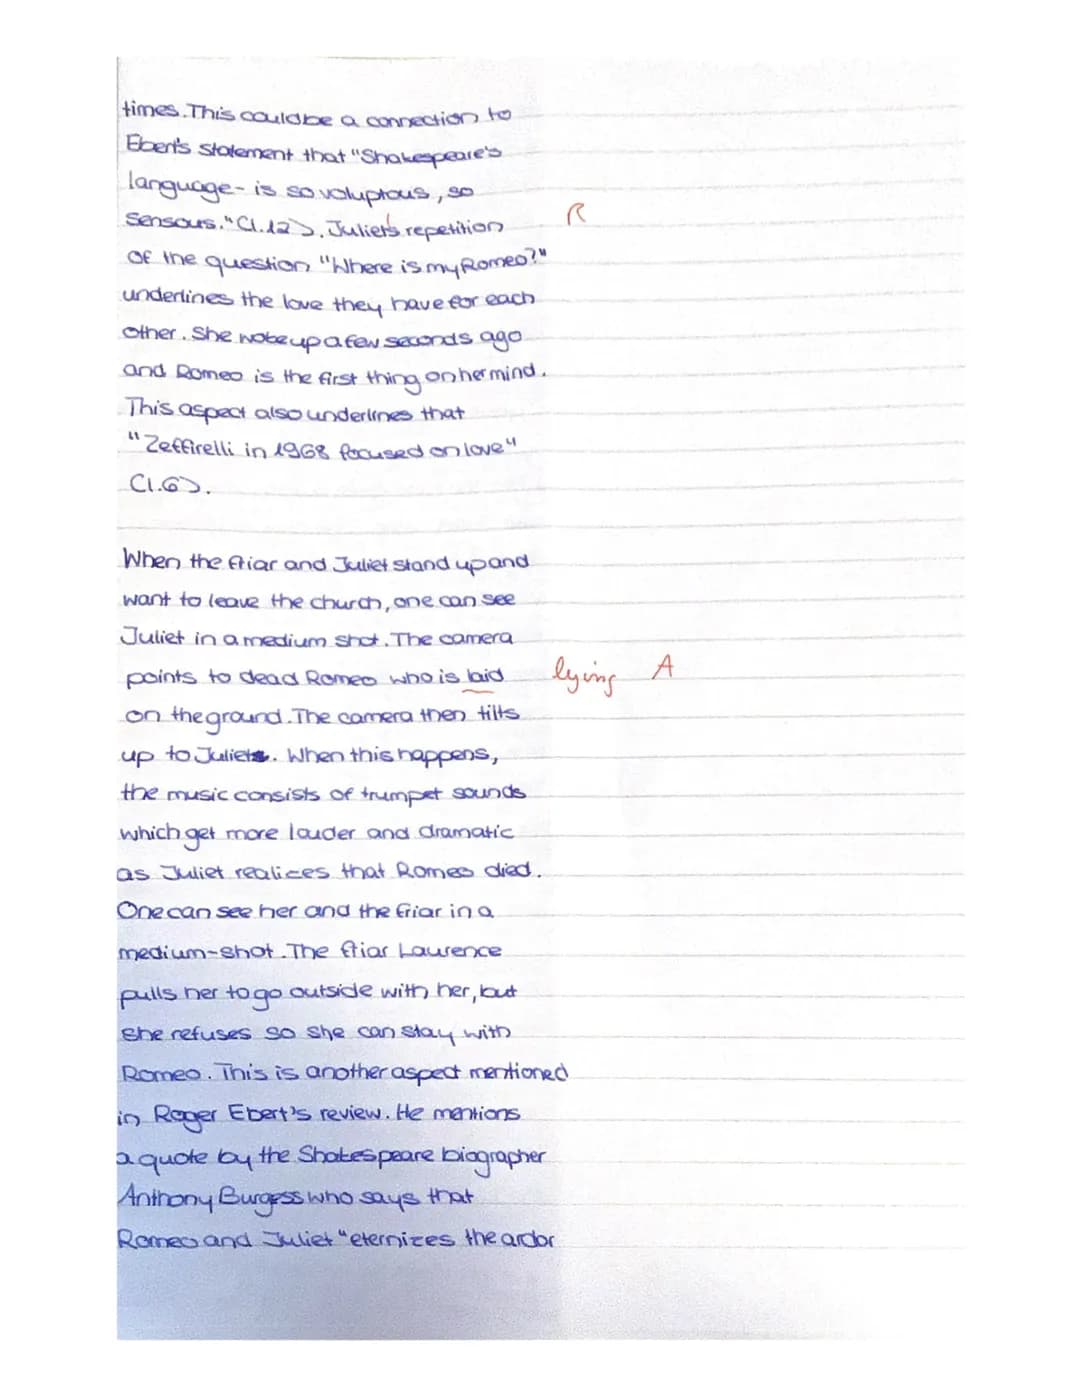 times. This could be a connection to
Ebert's statement that "Shakespeare's
language - is so voluptous, so
sensous." (l.12). Juliet's repetition R
of the question "Where is my Romeo?"
underlines the love they have for each
other. She woke up a few seconds ago
and Romeo is the first thing on her mind.
This aspect also underlines that
"Zeffirelli in 1968 focused on love"
(l.6).
When the friar and Juliet stand up and
want to leave the church, one can see
Juliet in a medium shot. The camera
points to dead Romeo who is laid lying A
on the ground. The camera then tilts
up to Juliet. When this happens,
the music consists of trumpet sounds
which get more louder and dramatic
as Juliet realices that Romeo died.
One can see her and the friar in a
medium-shot. The friar Laurence
pulls her to go outside with her, but
she refuses so she can stay with
Romeo. This is another aspect mentioned
in Roger Ebert's review. He mentions
a quote by the Shakespeare biographer
Anthony Burgess who says that
Romeo and Juliet "eternizes the ardor